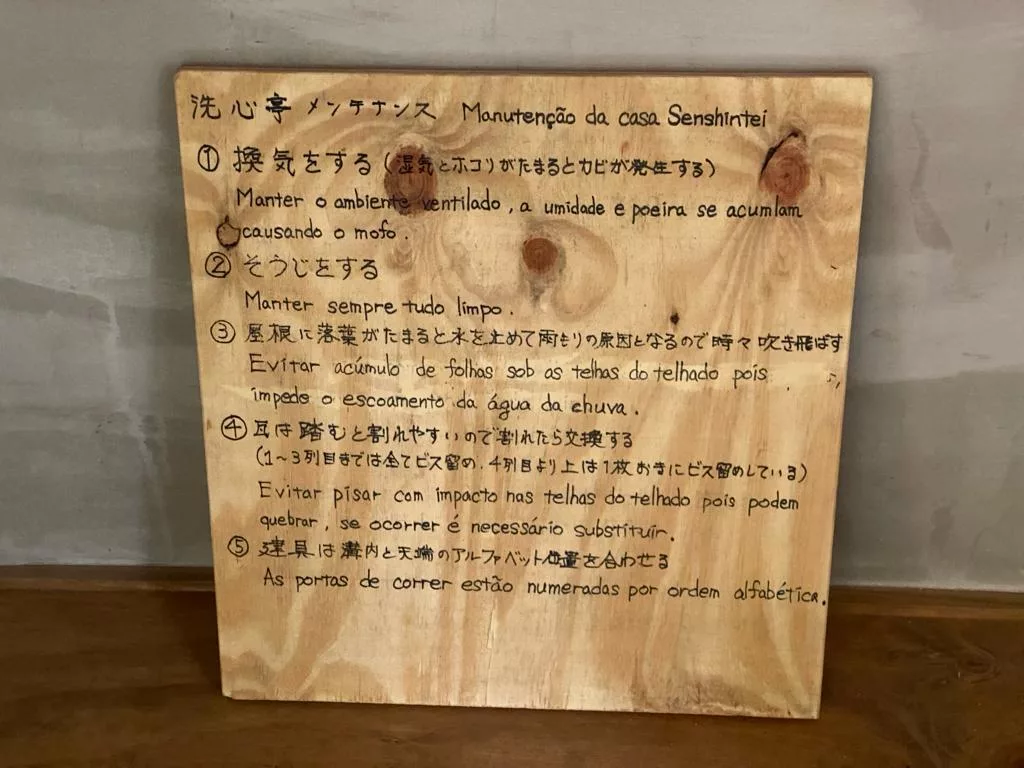 洗心亭 メンテナンス Manutenção da casa Senshintei
① 換気をする(湿気とホコリがたまるとカビが発生する)
Manter o ambiente ventilado, a umidade e poeira se acumlam
causando o mofo.
② そうじをする
Manter sempre tudo limpo.
③ 屋根に落葉がたまると水を止めて雨もりの原因となるので時々吹き飛ばす
Evitar acúmulo de folhas sob as telhas do telhado pois
impede o escoamento da água da chuva.
④ 瓦は踏むと割れやすいので割れたら交換する
(1~3列目までは全てビス留め.4列目より上は1枚おきにビス留めしている)
Evitar pisar com impacto nas telhas do telhado pois podem
quebrar, se ocorrer é necessário substituir.
⑤ 建具は溝内と天端のアルファベット位置を合わせる
As portas de correr estão numeradas por ordem alfabética.